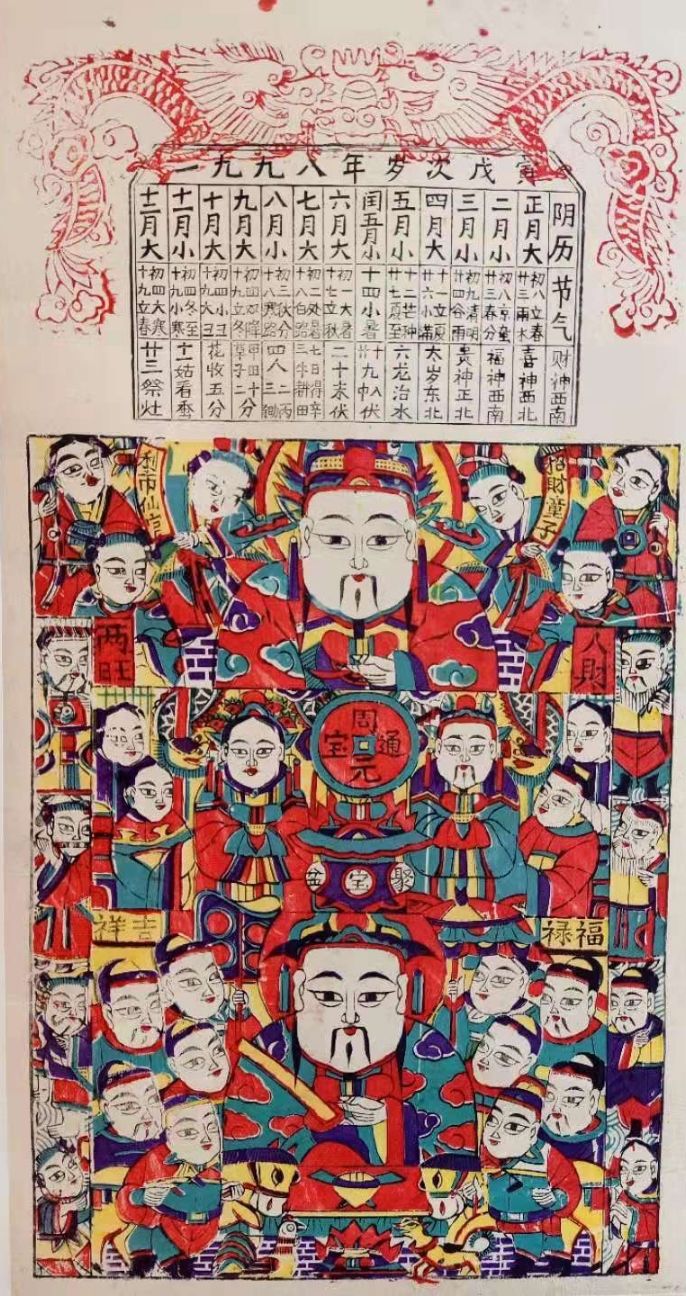 一九九八年岁次戊寅
阴历节气
财神西南
正月大
初八立春
廿三雨水
喜神西北
二月小
廿三春分
福神西南
三月小
初九清明
廿四谷雨
贵神正北
四月大
十一立夏
廿六小满
太岁东北
五月小
十二芒种
廿七夏至
六龙治水
闰五月小
十四小暑
廿九中伏
六月大
初一大暑
十七立秋
二十末伏
七月小
初二处暑
十八白路
七日得辛
三牛耕田
八月小
初三秋分
十八寒路
九月大
十九立冬
十月大
初四小卫
十九大卫
花收五分
十一月小
初四冬至
十九小寒
姑看蚕
十二月大
初四大寒
十九立春
廿三祭灶
招财童子
利市仙官
人财
两旺
周元通宝
聚宝盆
福禄
吉祥